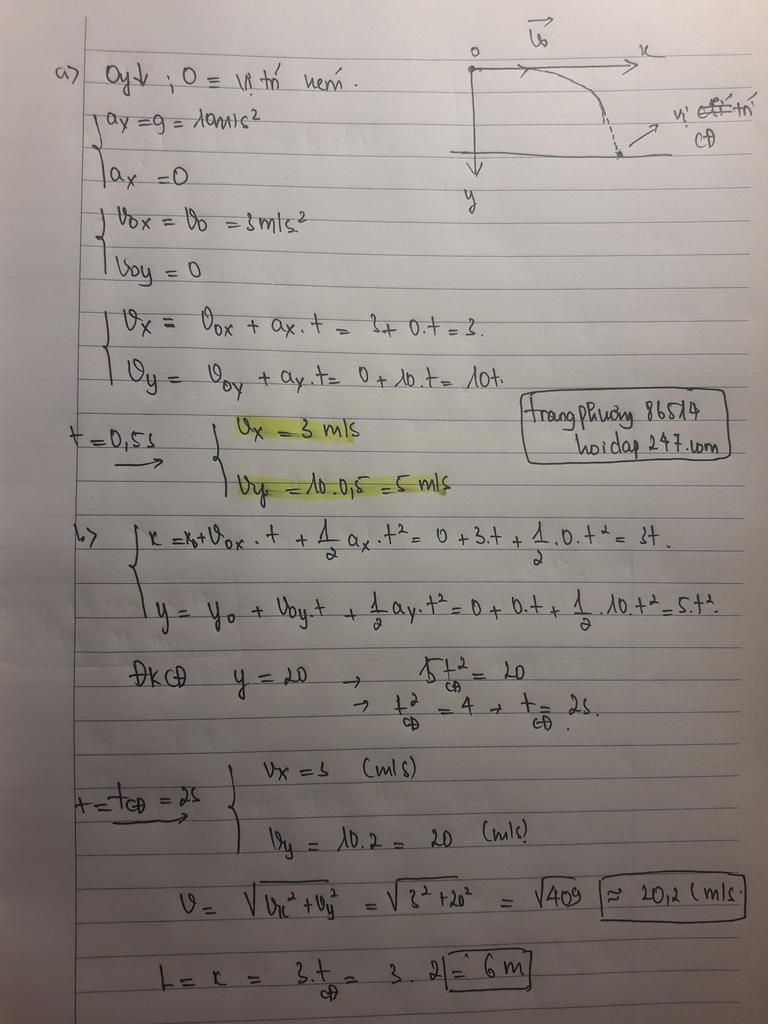 a> Oy↓ ; O ≡ vị trí ném.
O
v₀
x
y
vị trí
CĐ
ay = g = 10m/s²
ax = 0
v0x = v0 = 3m/s²
v0y = 0
vx = v0x + ax.t = 3 + 0.t = 3.
vy = v0y + ay.t = 0 + 10.t = 10t.
trangphuong 86514
hoidap 247.com
t = 0,5s
→
vx = 3 m/s
vy = 10.0,5 = 5 m/s
b> x = x0 + v0x . t + 1/2 ax . t² = 0 + 3.t + 1/2 . 0. t² = 3t.
y = y0 + v0y.t + 1/2 ay.t² = 0 + 0.t + 1/2 .10.t² = 5.t².
ĐKCĐ y = 20 → 5t²CĐ = 20
→ t²CĐ = 4 → tCĐ = 2s.
t = tCĐ = 2s
→
vx = 3 (m/s)
vy = 10.2 = 20 (m/s)
v = √(vx² + vy²) = √(3² + 20²) = √409 ≈ 20,2 (m/s.
L = x = 3.tCĐ = 3 . 2 = 6 m